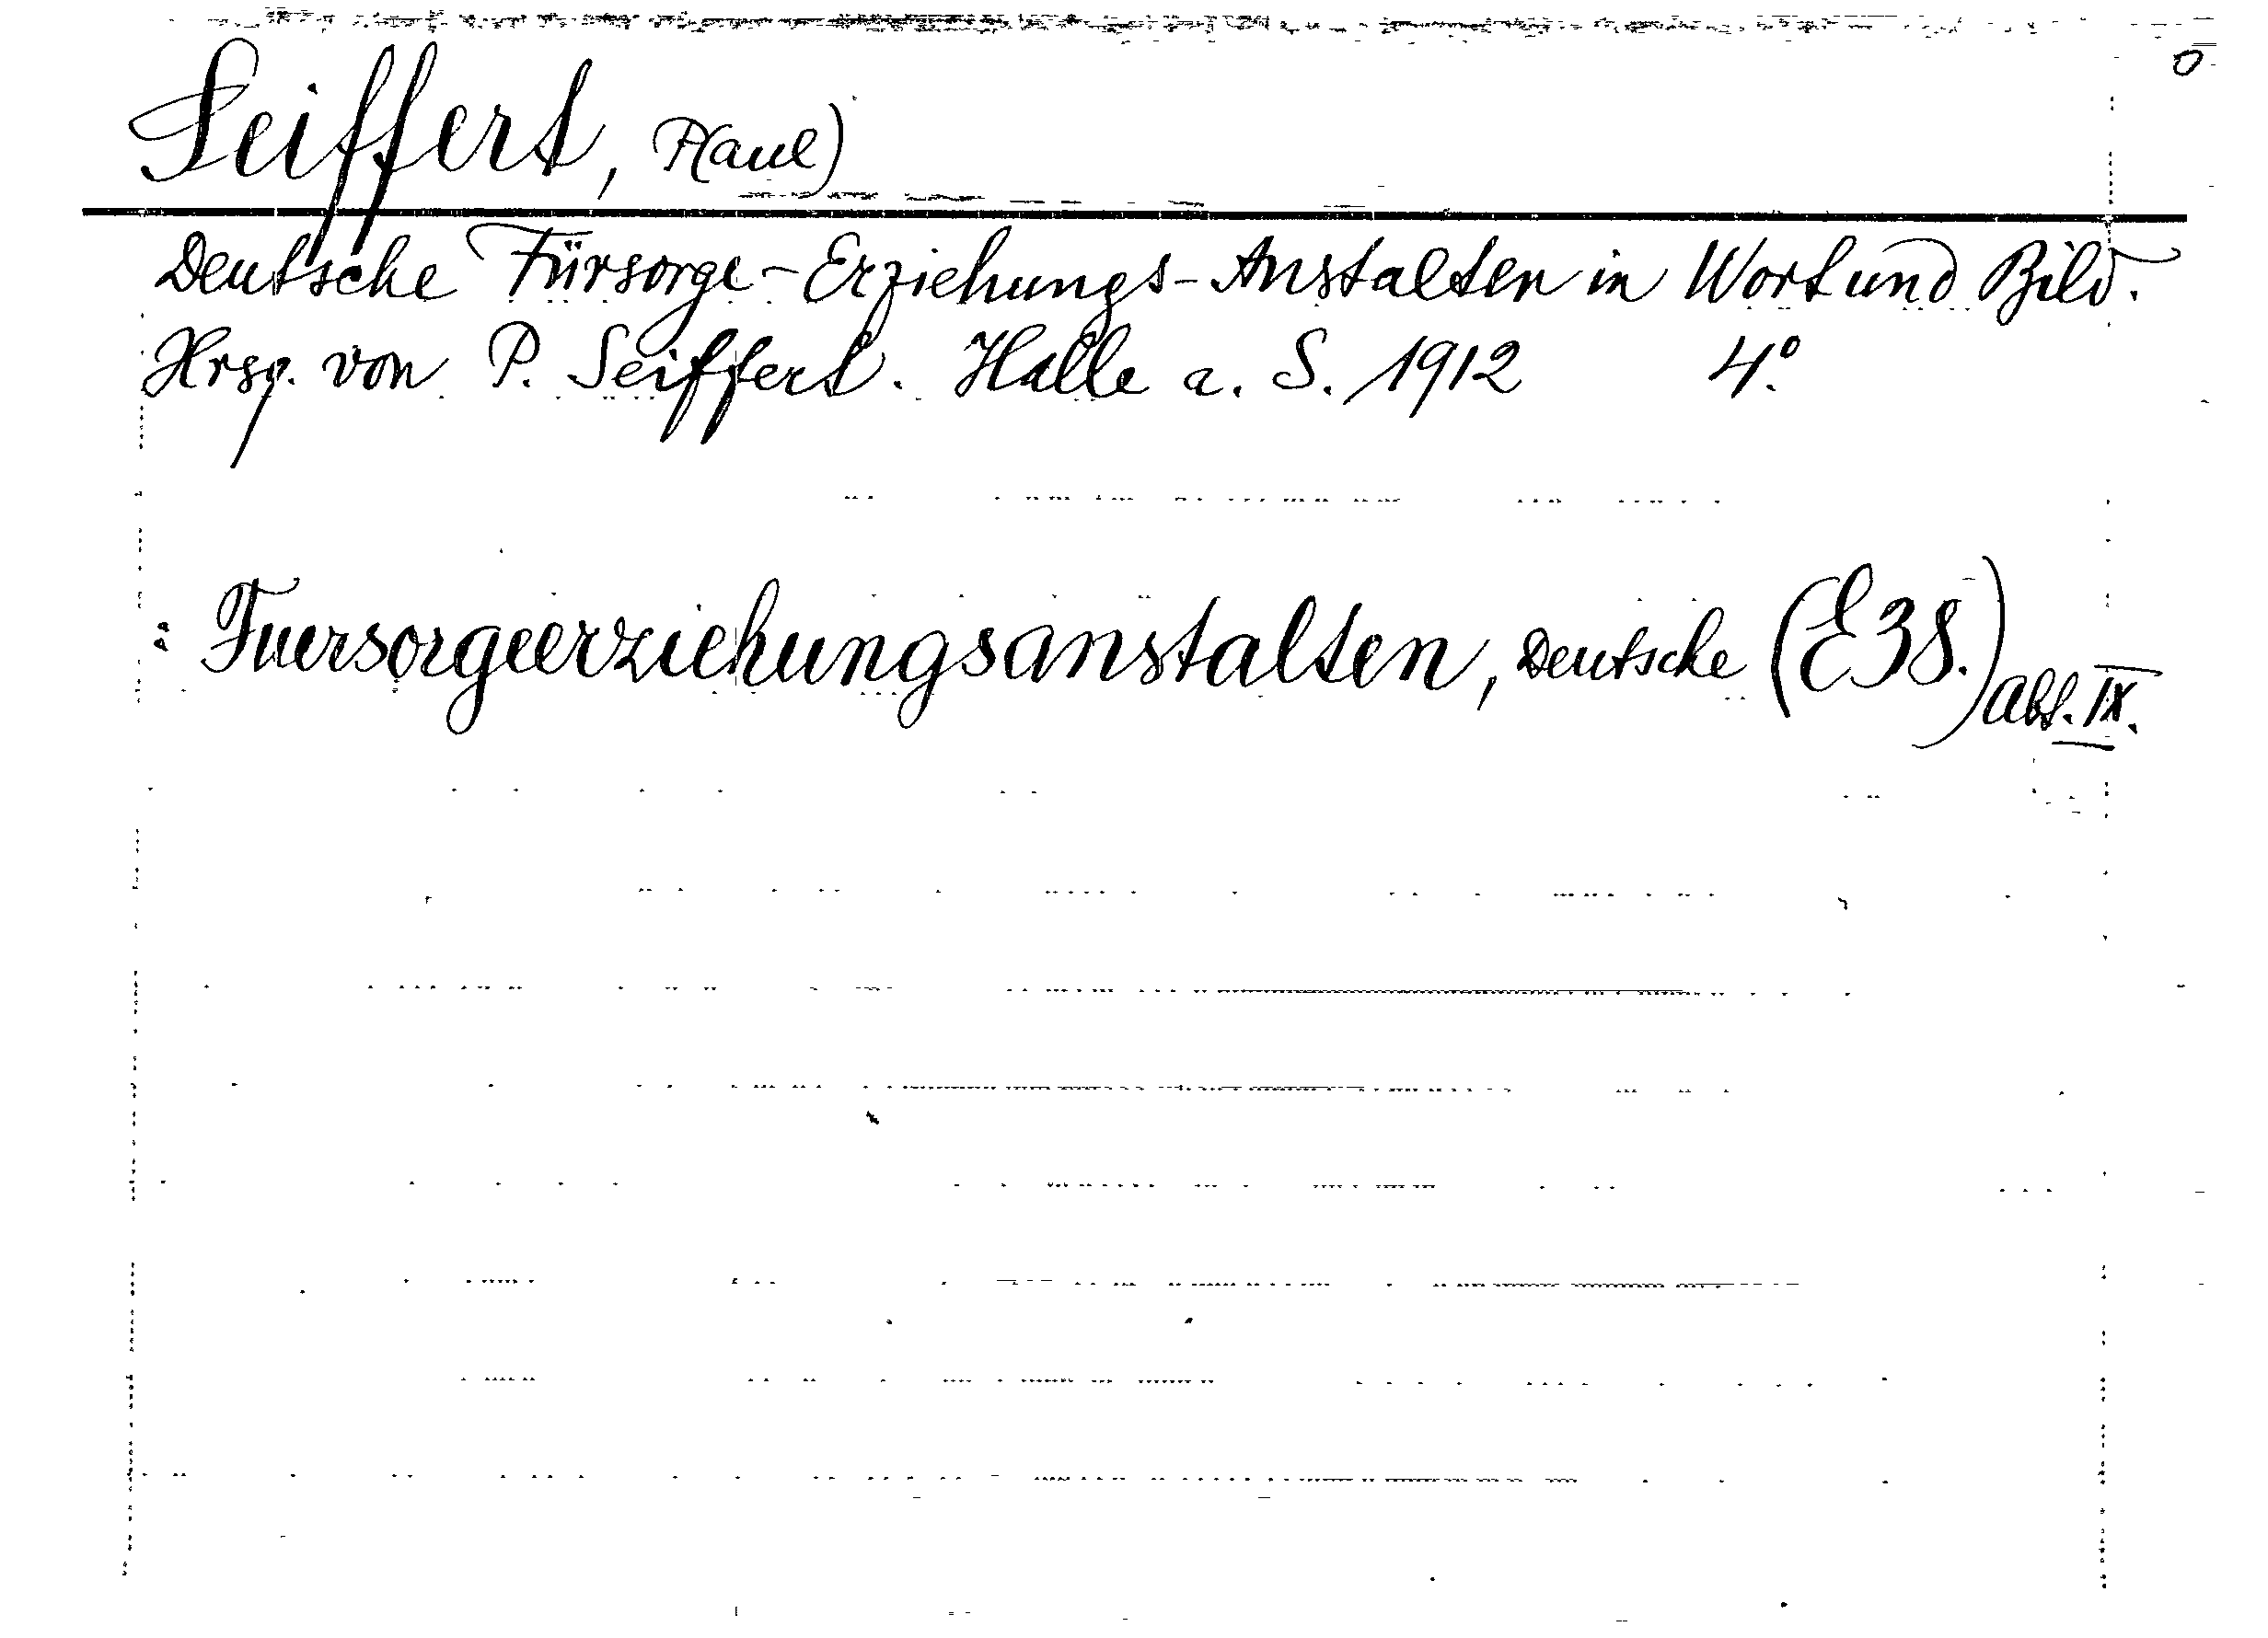 0
Seiffert, P(aul)
Deutsche Fürsorge-Erziehungs-Anstalten in Wort und Bild.
Hrsg. von P. Seiffert. Halle a. S. 1912 4°.
: Fuersorgeerziehungsanstalten, Deutsche (E38.) Abt. IX.